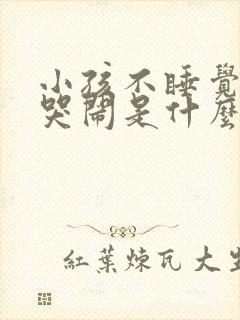 小孩不睡覺
哭鬧是什麼
紅葉煉瓦大